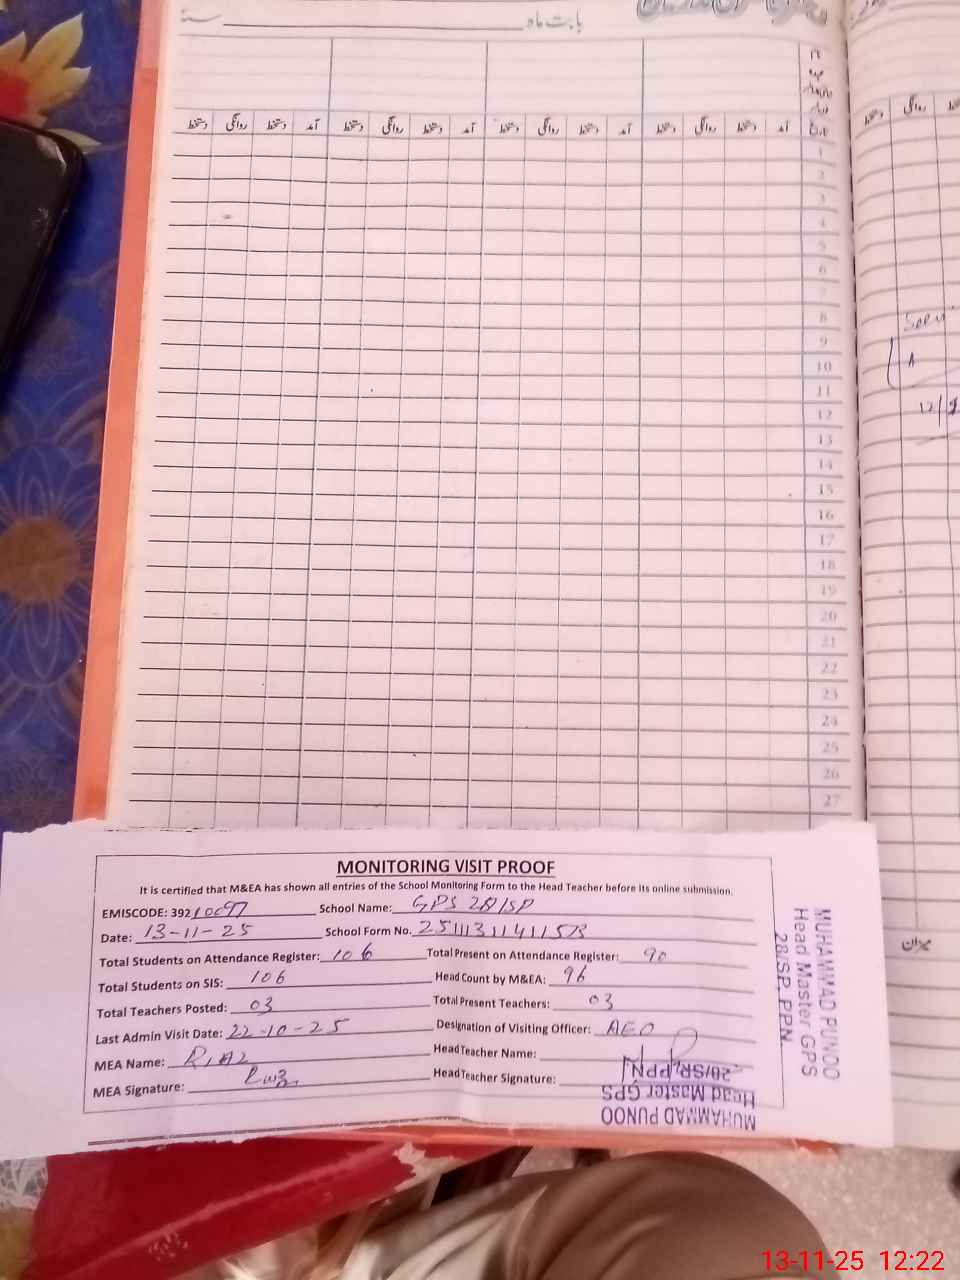 بابت ماہ ____________ سنہ
آمد دستخط روانگی دستخط آمد دستخط روانگی دستخط آمد دستخط روانگی دستخط آمد دستخط روانگی دستخط
روانگی
1
2
3
4
5
6
7
8
9
10
11
12
13
14
15
16
17
18
19
20
21
22
23
24
25
26
27
12/
میزان
MONITORING VISIT PROOF
It is certified that M&EA has shown all entries of the School Monitoring Form to the Head Teacher before its online submission.
EMISCODE: 392 10097 School Name: GPS 28/SP
Date: 13-11-25 School Form No.
Total Students on Attendance Register: 106 Total Present on Attendance Register: 90
Total Students on SIS: 106 Head Count by M&EA: 96
Total Teachers Posted: 03 Total Present Teachers: 03
Last Admin Visit Date: 22-10-25 Designation of Visiting Officer: AEO
MEA Name: RIAZ Head Teacher Name:
MEA Signature: Head Teacher Signature:
MUHAMMAD PUNOO
Head Master GPS
28/SP, PPN
MUHAMMAD PUNOO
Head Master GPS
28/SP, PPN
13-11-25 12:22